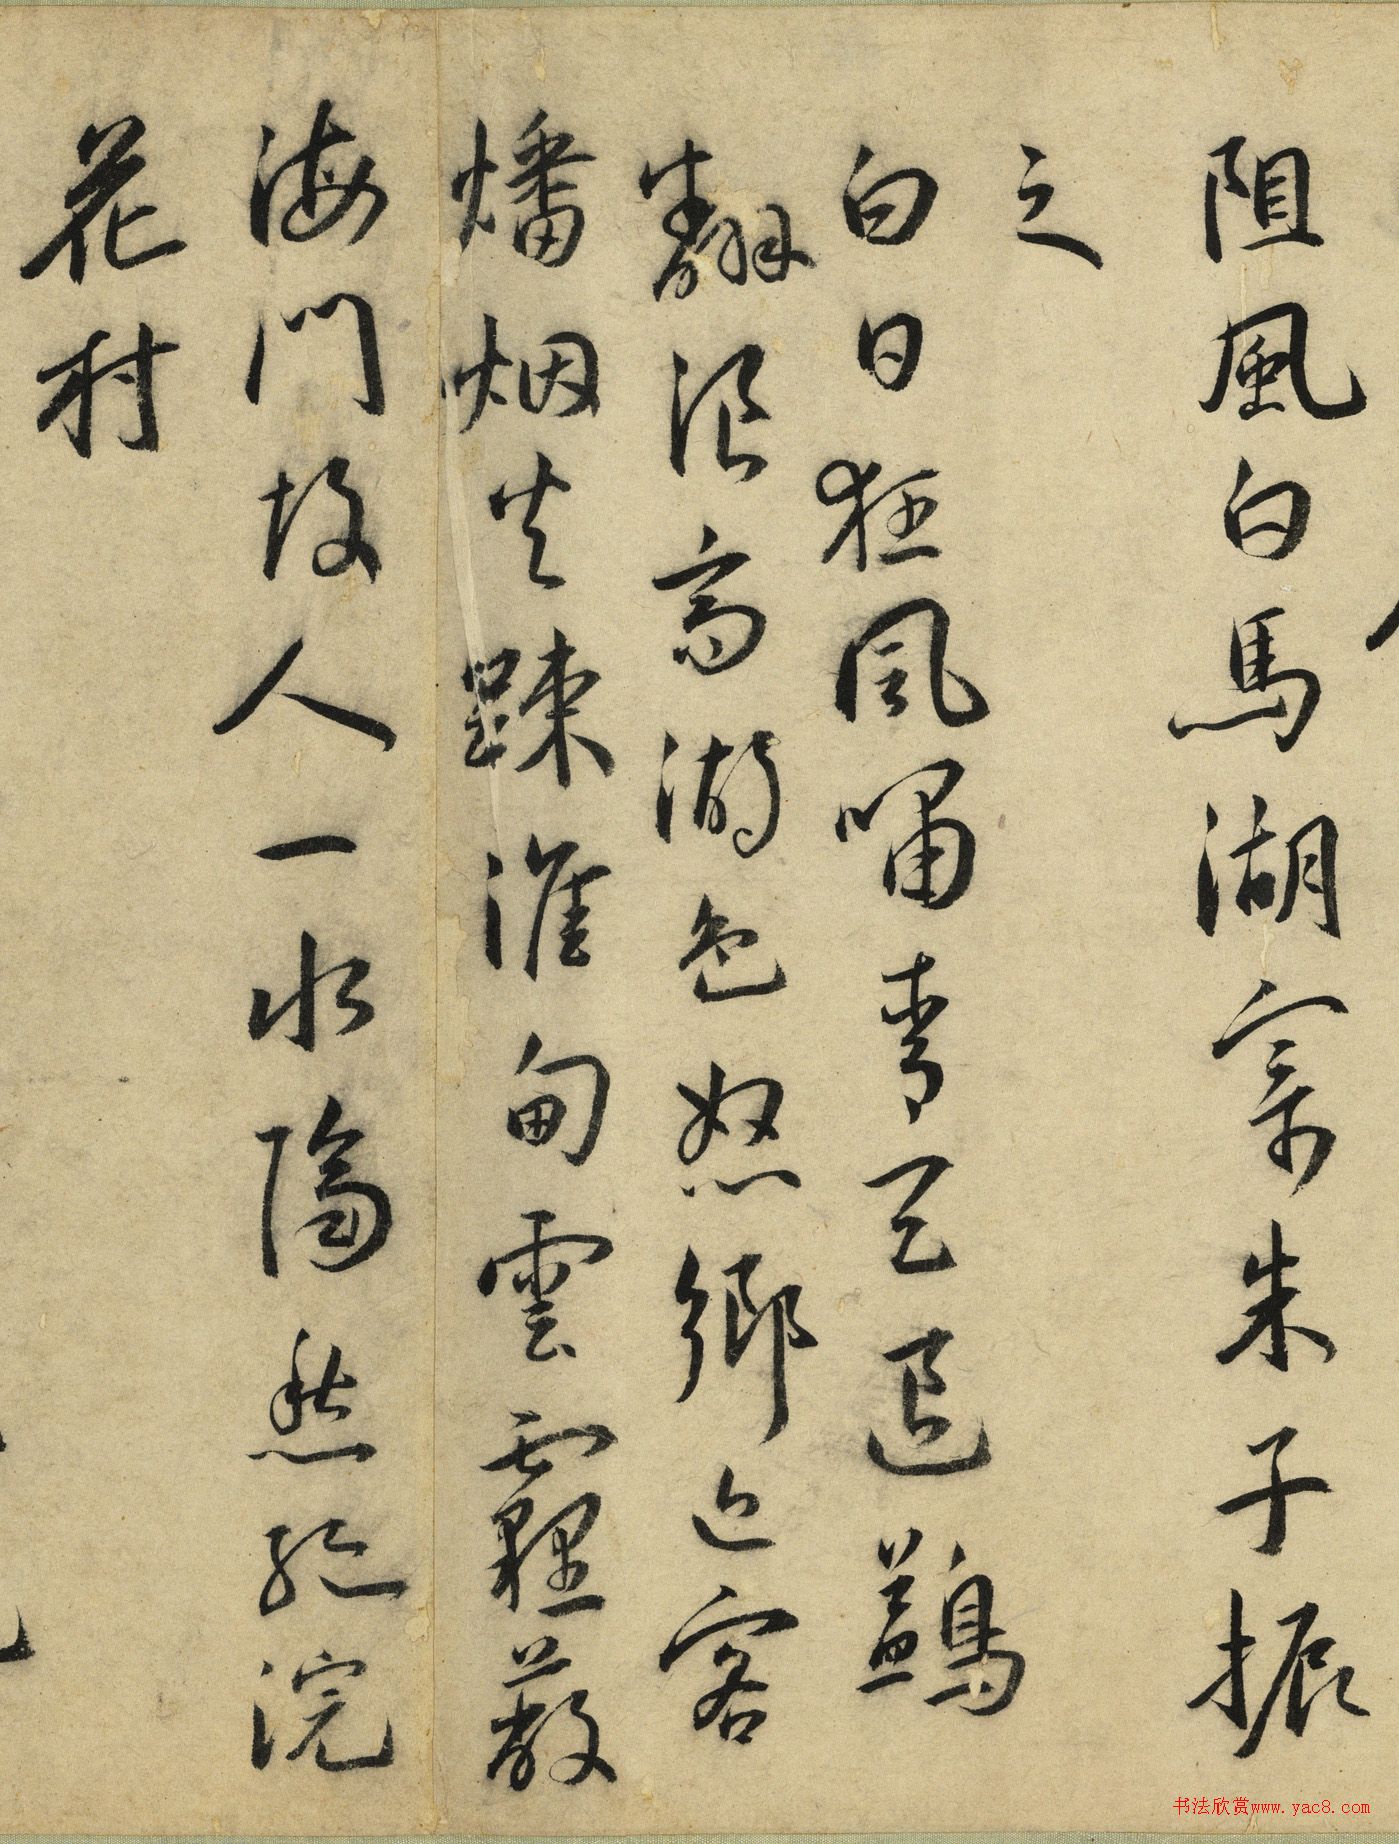 阻風白馬湖寄朱子振
之
白日狂風嘯青天退鷁
翻浪高湖色怒鄉近客
燔烟火疎淮甸雲霾蔽
海門故人一水隔愁絶浣
花村
书法欣赏www.yac8.com